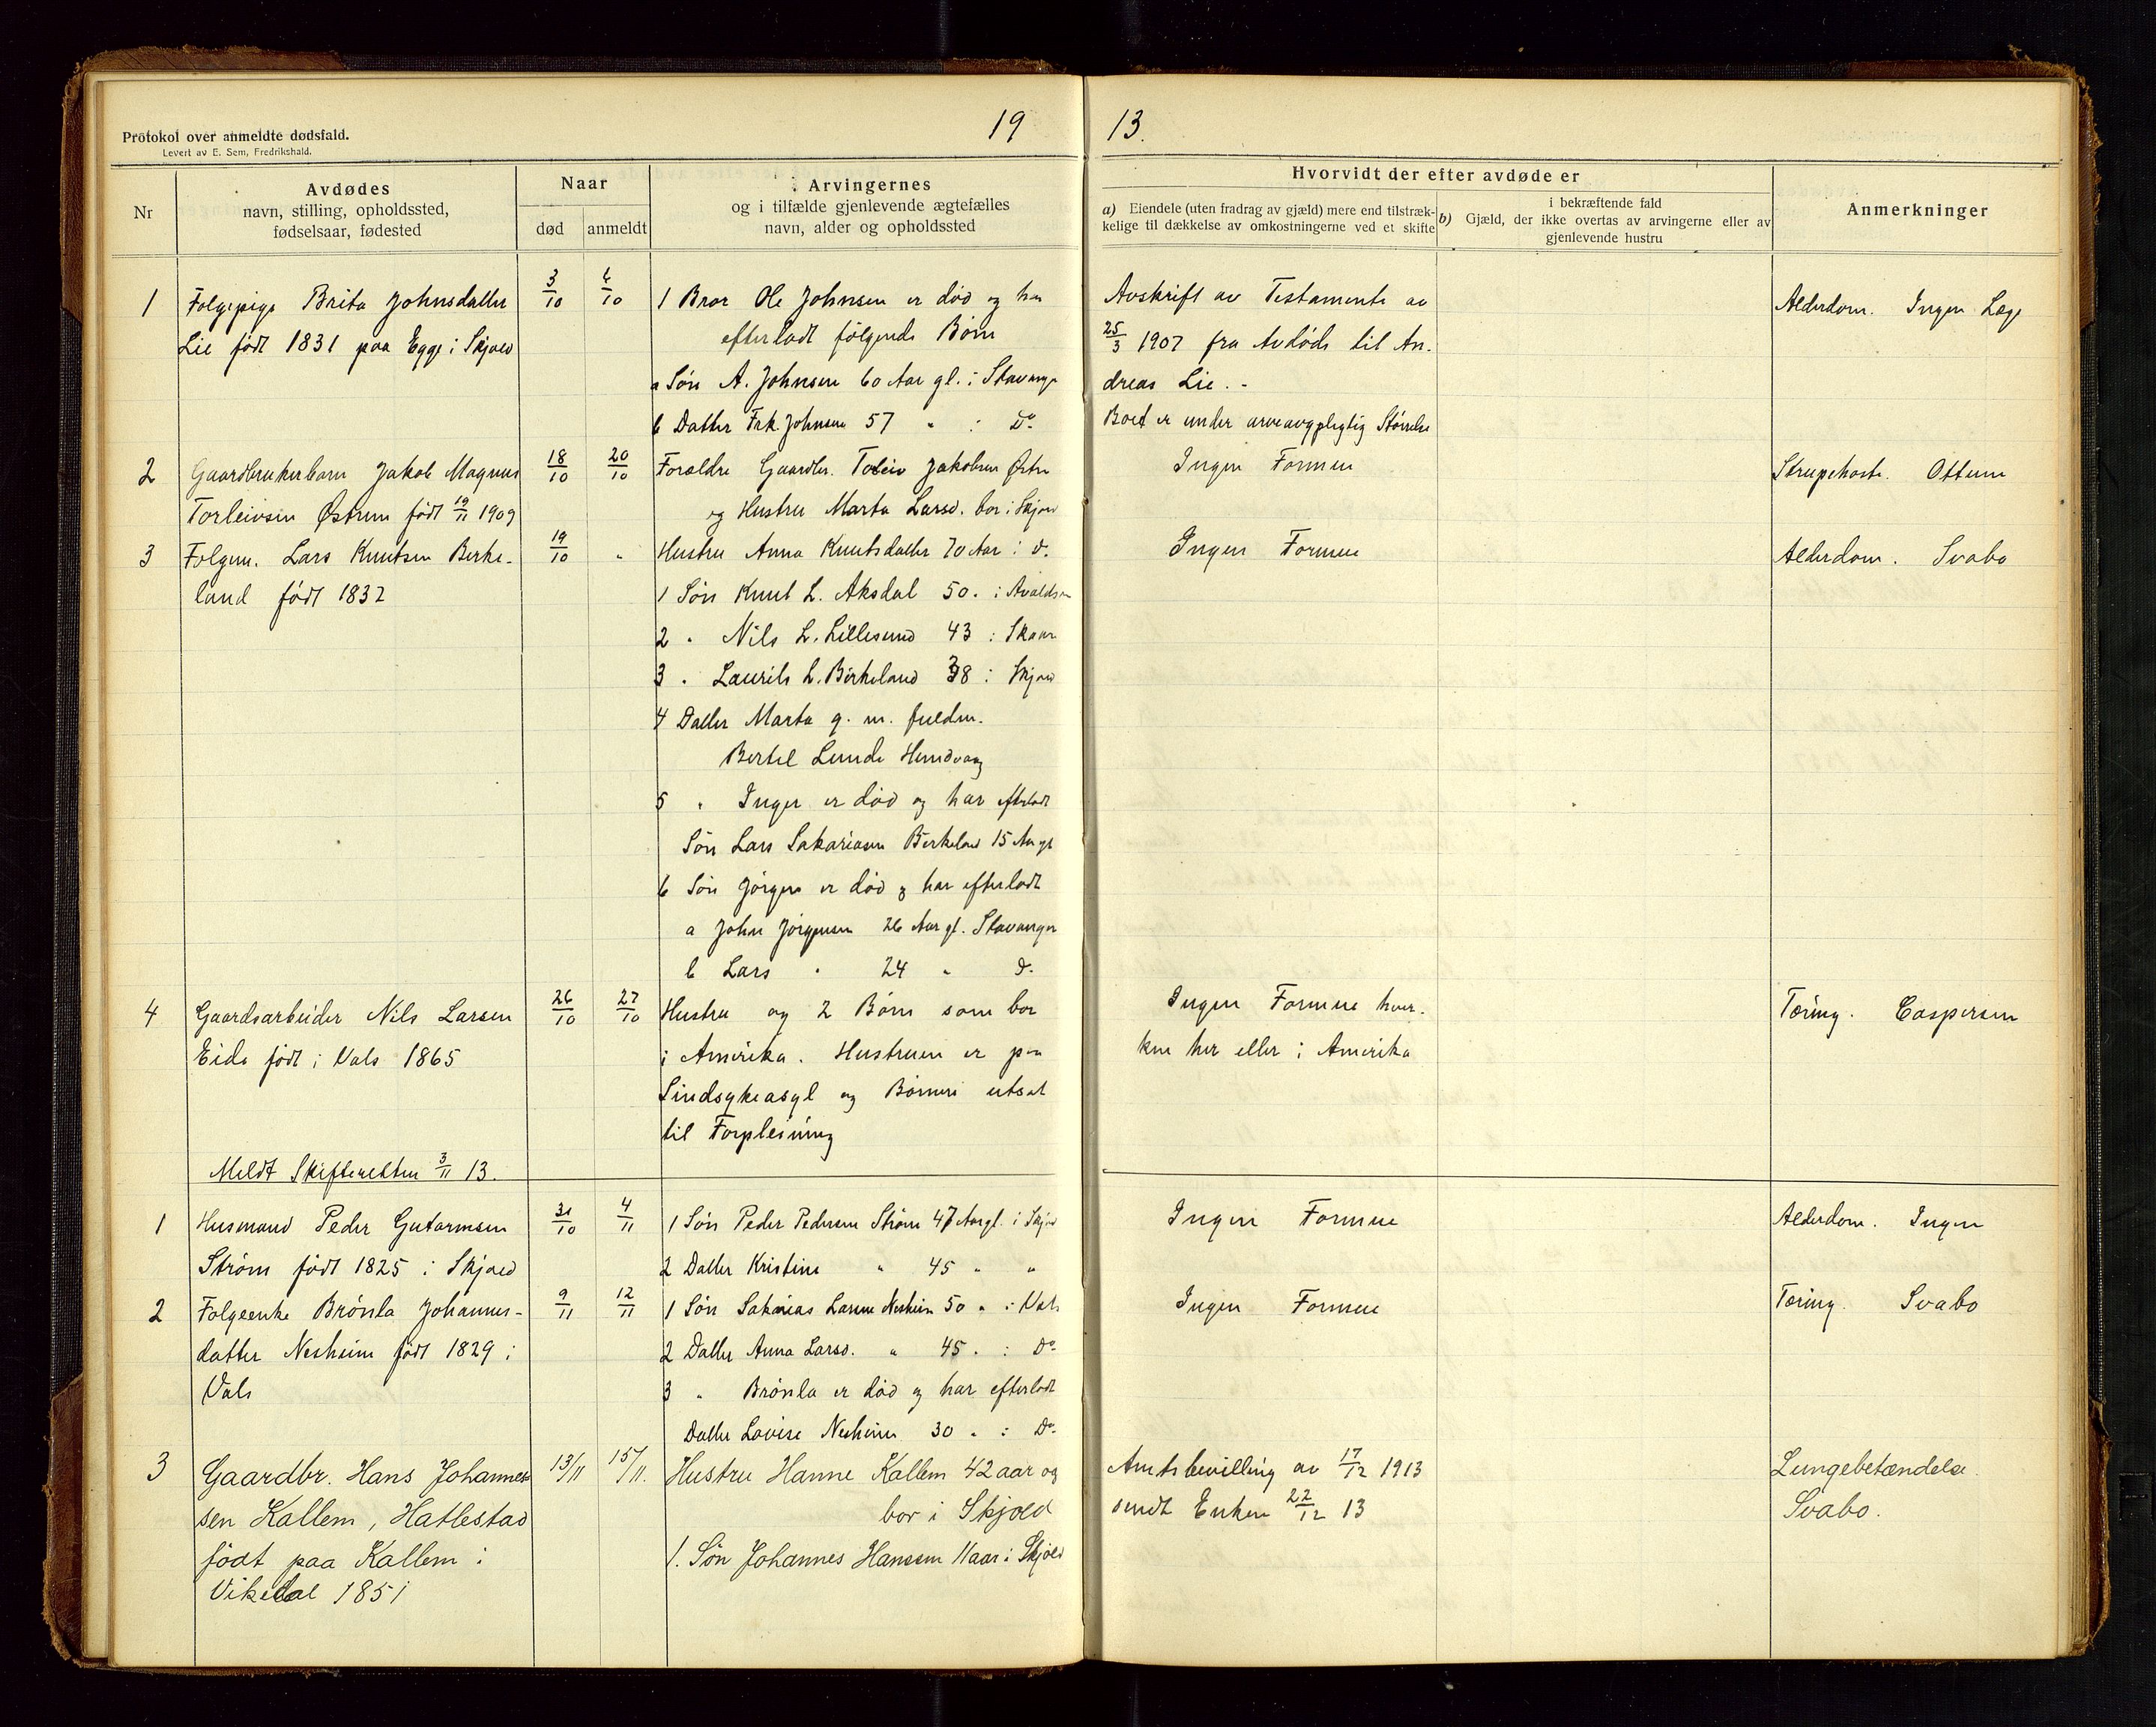 Protokol over anmeldte dødsfald.
Levert av E. Sem, Fredrikshald.
19
13.
Nr
Avdødes
navn, stilling, opholdssted,
fødselsaar, fødested
Naar
død
anmeldt
Arvingernes
og i tilfælde gjenlevende ægtefælles
navn, alder og opholdssted
Hvorvidt der efter avdøde er
a) Eiendele (uten fradrag av gjæld) mere end tilstræk-
kelige til dækkelse av omkostningerne ved et skifte
i bekræftende fald
b) Gjæld, der ikke overtas av arvingerne eller av
gjenlevende hustru
Anmerkninger
1
Folgepige Brita Johnsdatter
Lie født 1831 paa Egge i Skjold
3/10
6/10
1 Bror Ole Johnsen er død og har
efterladt følgende Børn
a Søn A. Johnsen 60 Aar gl. i Stavanger
b Datter Frk. Johnsen 57 " : Do
Avskrift av Testamente av
25/3 1907 fra Avdøde til An-
dreas Lie. -
Boet er under arveavgpligtig Størrelse
Alderdom. Ingen Læge
2
Gaardbrukerbarn Jakob Magnus
Torleivsen Østrem født 19/11 1909
18/10
20/10
Forældre Gaardbr. Toleiv Jakobsen Østre
og Hustru Marta Larsd. bor i Skjold
Ingen Formue
Strupehoste. Ottum
3
Folgem. Lars Knutsen Berke-
land født 1832
19/10
"
Hustru Anna Knutsdatter 70 Aar i D.
1 Søn Knut L. Aksdal 50. i Avaldsn
2 " Nils L. Lillesund 43 : Skaar
3 " Laurits L. Birkeland 38 : Skjold
4 Datter Marta g. m. fuldm.
Bertel Lunde Hundvaag
5 " Inger er død og har efterladt
Søn Lars Sakariasen Berkeland 15 Aar gl
6 Søn Jørgen er død og har efterladt
a John Jørgensen 26 Aar gl. Stavanger
b Lars " 24 " D.
Ingen Formue
Alderdom. Svabo
4
Gaardsarbeider Nils Larsen
Eide født i Vats 1865
26/10
27/10
Hustru og 2 Børn som bor
i Amerika. Hustruen er paa
Sindsykeasyl og Børnene utsat
til Forpleining
Ingen Formue hver-
ken her eller i Amerika
Tæring. Caspersen
Meldt Skifteretten 3/11 13.
1
Husmand Peder Gutormsen
Strøm født 1825 i Skjold
31/10
4/11
1 Søn Peder Pedersen Strøm 47 Aar gl. i Skjold
2 Datter Kristine " 45 " "
Ingen Formue
Alderdom. Ingen
2
Folgeenke Brønla Johannes-
datter Nesheim født 1829 i
Vats
9/11
12/11
1 Søn Sakarias Larsen Nesheim 50 " : Vats
2 Datter Anna Larsd. " 45 . : Do
3 " Brønla er død og har efterladt
Datter Lovise Nesheim 30 " : Do
Ingen Formue
Tæring. Svabo
3
Gaardbr. Hans Johannes-
sen Kallem, Hatlestad
født paa Kallem i
Vikedal 1851
13/11
15/11.
Hustru Hanne Kallem 42 aar og
bor i Skjold
1. Søn Johannes Hanssen 11 aar i Skjold
Amtsbevilling av 17/12 1913
sendt Enken 22/12 13
Lungebetændelse.
Svabo.